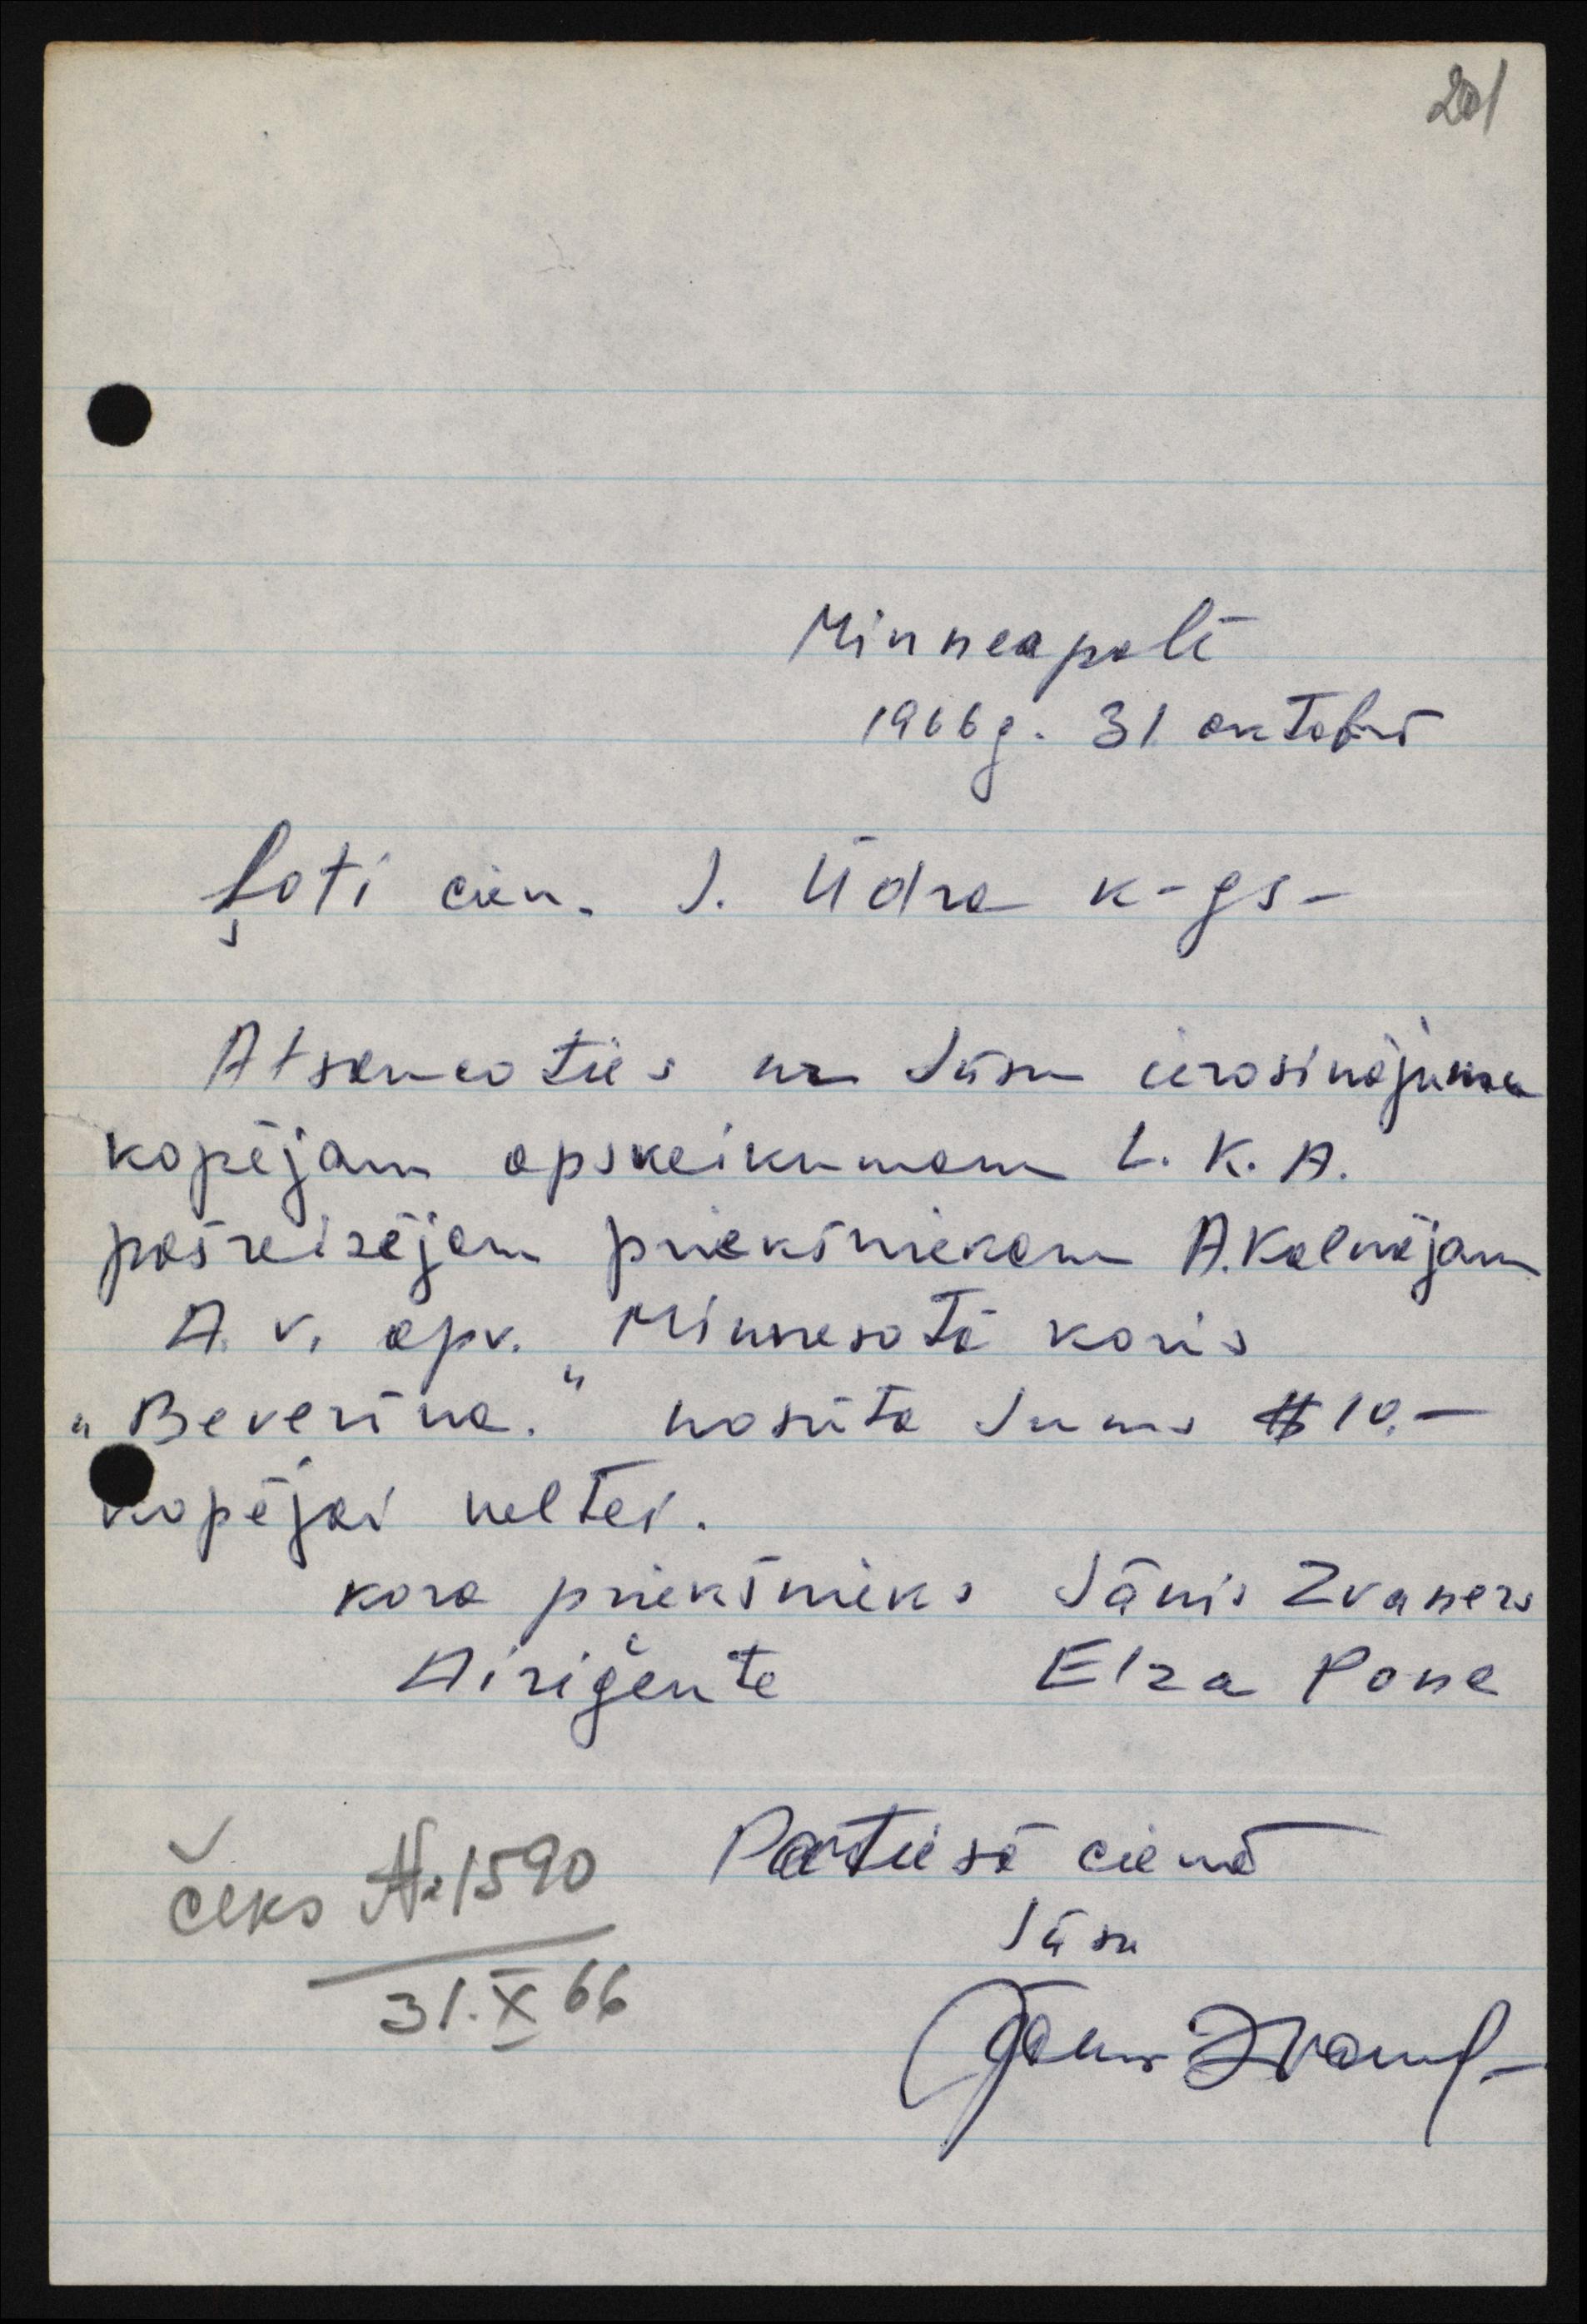 201
Minneapolē
1966g. 31 oktobrī
Ļoti cien. J. Ūdra k-gs-
Atsaucoties uz Jūsu ierosinājumu
kopējam apsveikumam L. K. A.
pašreizējam priekšniekam A. Kalnājam
A. v. apv. Minnesotā koris
„Beverīna." nosūta Jums $10.-
kopējai veltei.
kora priekšnieks Jānis Zvaners
Diriģente Elza Pone
Čeks № 1590
31. X 66
Patiesā cieņā
Jūsu